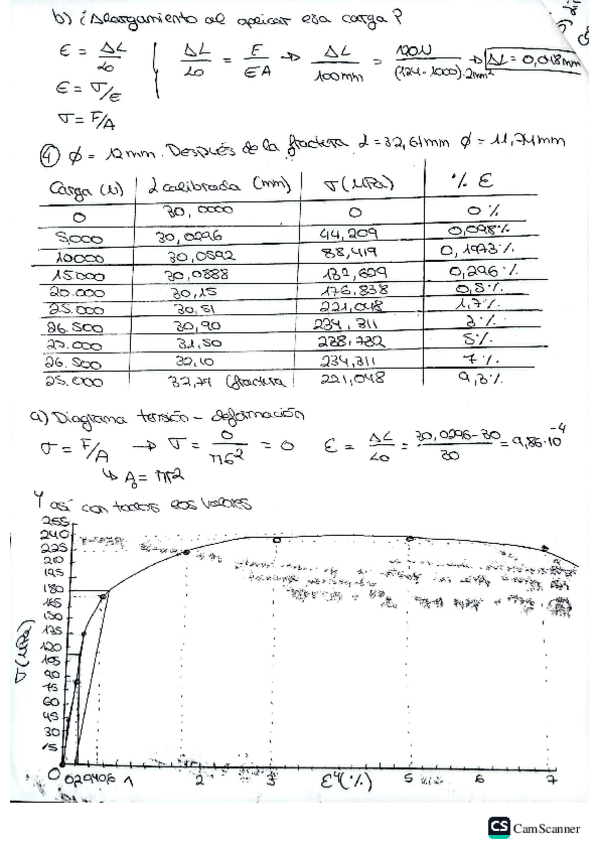 b) ¿Alargamiento al aplicar esa carga?
ε = ΔL/Lo
ΔL/Lo = F/EA → ΔL/100mm = 120N/(124·1000)·2mm² → ΔL = 0,048mm
ε = σ/E
σ = F/A
④ φ = 12mm. Después de la fractura L = 32,61mm φ = 11,74mm
Carga (N) L calibrada (mm) σ (MPa) % ε
0 30,0000 0 0%
5000 30,0296 44,209 0,098%
10000 30,0592 88,419 0,1973%
15000 30,0888 132,629 0,296%
20.000 30,15 176,838 0,5%
25.000 30,51 221,048 1,7%
26.500 30,90 234,311 3%
27.000 31,50 238,732 5%
26.500 32,10 234,311 7%
25.000 32,79 (fractura) 221,048 9,3%
a) Diagrama tensión - deformación
σ = F/A → σ = 0/π6² = 0 ε = ΔL/Lo = 30,0296-30/30 = 9,86·10⁻⁴
↳ A₀ = πr²
Y así con todos los valores
255
240
225
210
195
180
165
150
135
120
105
90
75
60
45
30
15
0
σ (MPa)
0,2 0,4 0,6 1 2 3 5 6 7
ε (%)
CS CamScanner